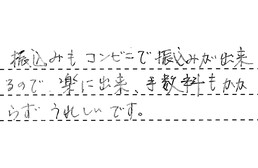 振込みもコンビニで振込みが出来
るので楽に出来、手数料もかか
らずうれしいです。